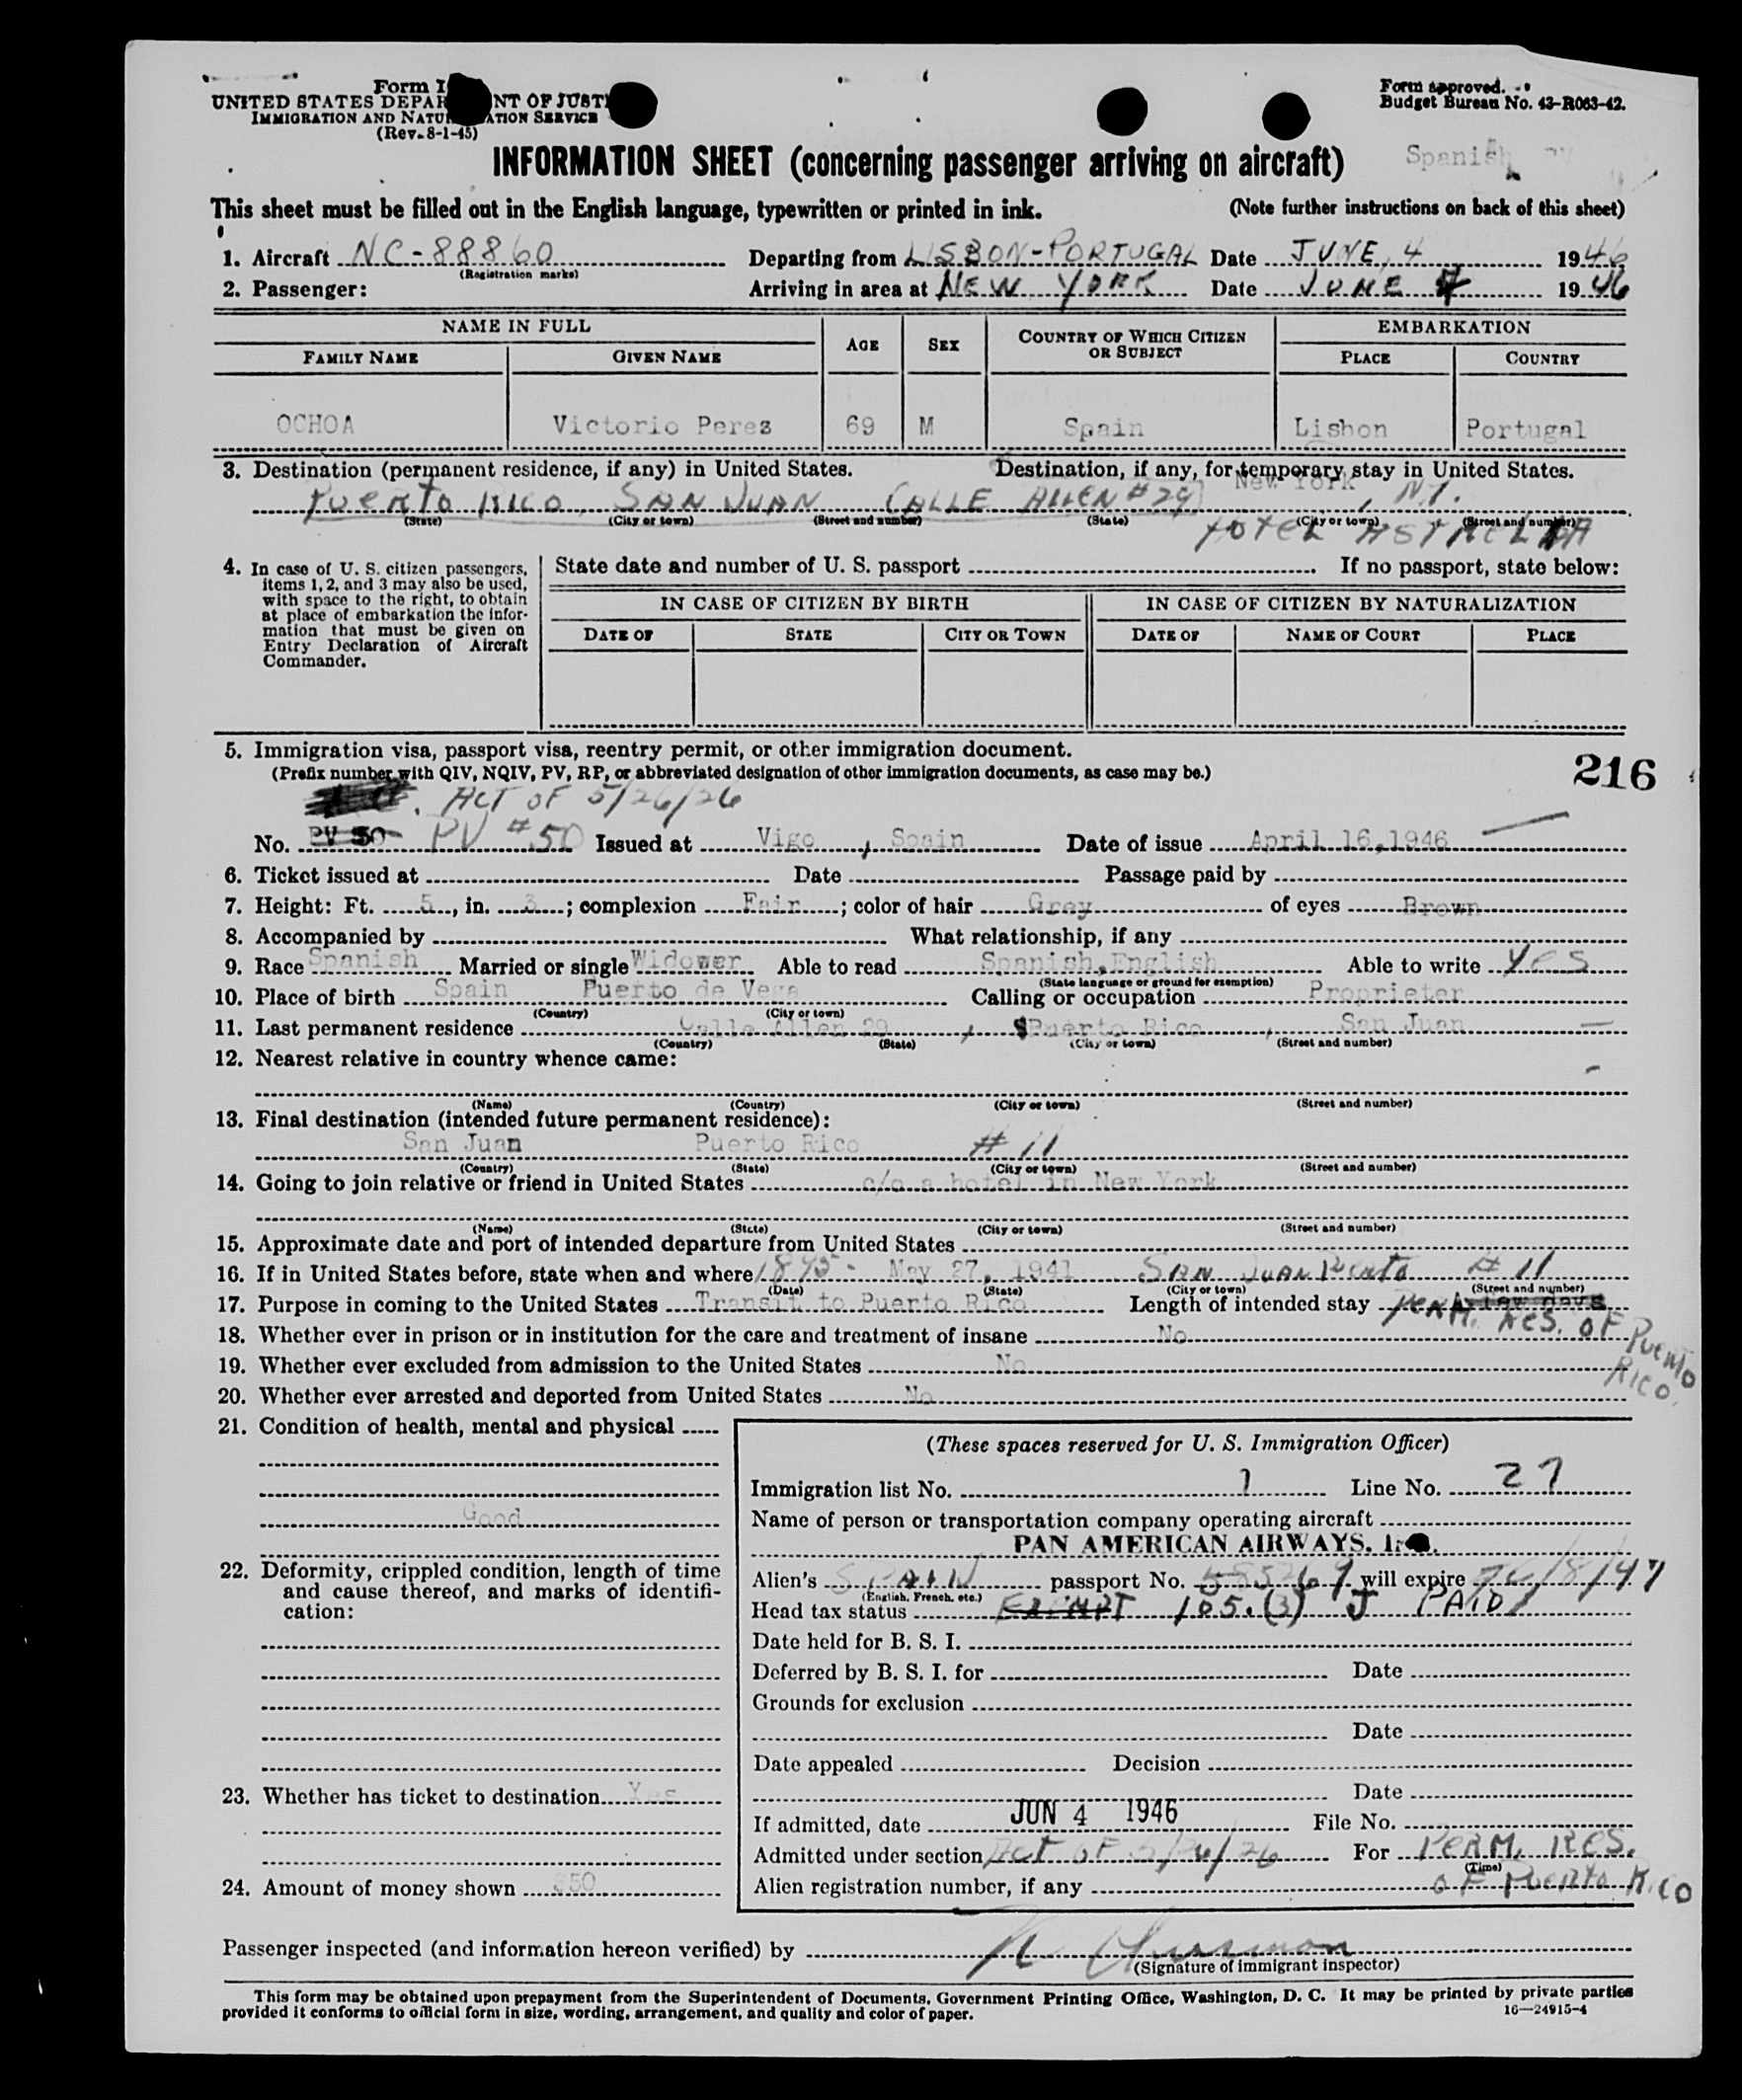 Form I
UNITED STATES DEPAR NT OF JUST
IMMIGRATION AND NATU ATION SERVICE
(Rev. 8-1-45)
Form approved.
Budget Bureau No. 43-R063-42.
INFORMATION SHEET (concerning passenger arriving on aircraft)
Spanish
This sheet must be filled out in the English language, typewritten or printed in ink. (Note further instructions on back of this sheet)
1. Aircraft NC-88860 Departing from LISBON-PORTUGAL Date JUNE, 4 1946
(Registration marks)
2. Passenger: Arriving in area at NEW YORK Date JUNE 1946
NAME IN FULL AGE SEX COUNTRY OF WHICH CITIZEN OR SUBJECT EMBARKATION
FAMILY NAME GIVEN NAME PLACE COUNTRY
OCHOA Victorio Perez 69 M Spain Lisbon Portugal
3. Destination (permanent residence, if any) in United States. Destination, if any, for temporary stay in United States.
New York, N.Y.
PUERTO RICO, SAN JUAN CALLE ALLEN #29
(State) (City or town) (Street and number) (State) (City or town) (Street and number)
HOTEL
4. In case of U. S. citizen passengers, items 1, 2, and 3 may also be used, with space to the right, to obtain at place of embarkation the information that must be given on Entry Declaration of Aircraft Commander.
State date and number of U. S. passport If no passport, state below:
IN CASE OF CITIZEN BY BIRTH IN CASE OF CITIZEN BY NATURALIZATION
DATE OF STATE CITY OR TOWN DATE OF NAME OF COURT PLACE
5. Immigration visa, passport visa, reentry permit, or other immigration document.
(Prefix number with QIV, NQIV, PV, RP, or abbreviated designation of other immigration documents, as case may be.)
216
ACT OF 5/26/26
No. PV 50 PV #50 Issued at Vigo, Spain Date of issue April 16,1946
6. Ticket issued at Date Passage paid by
7. Height: Ft. 5, in. 3; complexion Fair; color of hair Grey of eyes Brown
8. Accompanied by What relationship, if any
9. Race Spanish Married or single Widower Able to read Spanish,English Able to write YES
(State language or ground for exemption)
10. Place of birth Spain Puerto de Vega Calling or occupation Proprieter
(Country) (City or town)
11. Last permanent residence Calle Allen 29, Puerto Rico, San Juan
(Country) (State) (City or town) (Street and number)
12. Nearest relative in country whence came:
(Name) (Country) (City or town) (Street and number)
13. Final destination (intended future permanent residence):
San Juan Puerto Rico # 11
(Country) (State) (City or town) (Street and number)
14. Going to join relative or friend in United States c/o a hotel in New York
(Name) (State) (City or town) (Street and number)
15. Approximate date and port of intended departure from United States
16. If in United States before, state when and where 1895- May 27, 1941 SAN JUAN Puerto # 11
(Date) (State) (City or town) (Street and number)
17. Purpose in coming to the United States Transit to Puerto Rico Length of intended stay few days
PERM. RES. OF PUERTO RICO.
18. Whether ever in prison or in institution for the care and treatment of insane No
19. Whether ever excluded from admission to the United States No
20. Whether ever arrested and deported from United States No
21. Condition of health, mental and physical
Good
22. Deformity, crippled condition, length of time and cause thereof, and marks of identification:
23. Whether has ticket to destination Yes
24. Amount of money shown $50
(These spaces reserved for U. S. Immigration Officer)
Immigration list No. 1 Line No. 27
Name of person or transportation company operating aircraft
PAN AMERICAN AIRWAYS,
Alien's SPAIN passport No. will expire
(English, French, etc.)
Head tax status EXEMPT 105.(3) J PAID
Date held for B. S. I.
Deferred by B. S. I. for Date
Grounds for exclusion
Date
Date appealed Decision
Date
If admitted, date JUN 4 1946 File No.
Admitted under section Act OF 5/26/26 For PERM. RES.
(Time)
OF Puerto Rico
Alien registration number, if any
Passenger inspected (and information hereon verified) by
(Signature of immigrant inspector)
This form may be obtained upon prepayment from the Superintendent of Documents, Government Printing Office, Washington, D. C. It may be printed by private parties
provided it conforms to official form in size, wording, arrangement, and quality and color of paper. 16—24915-4